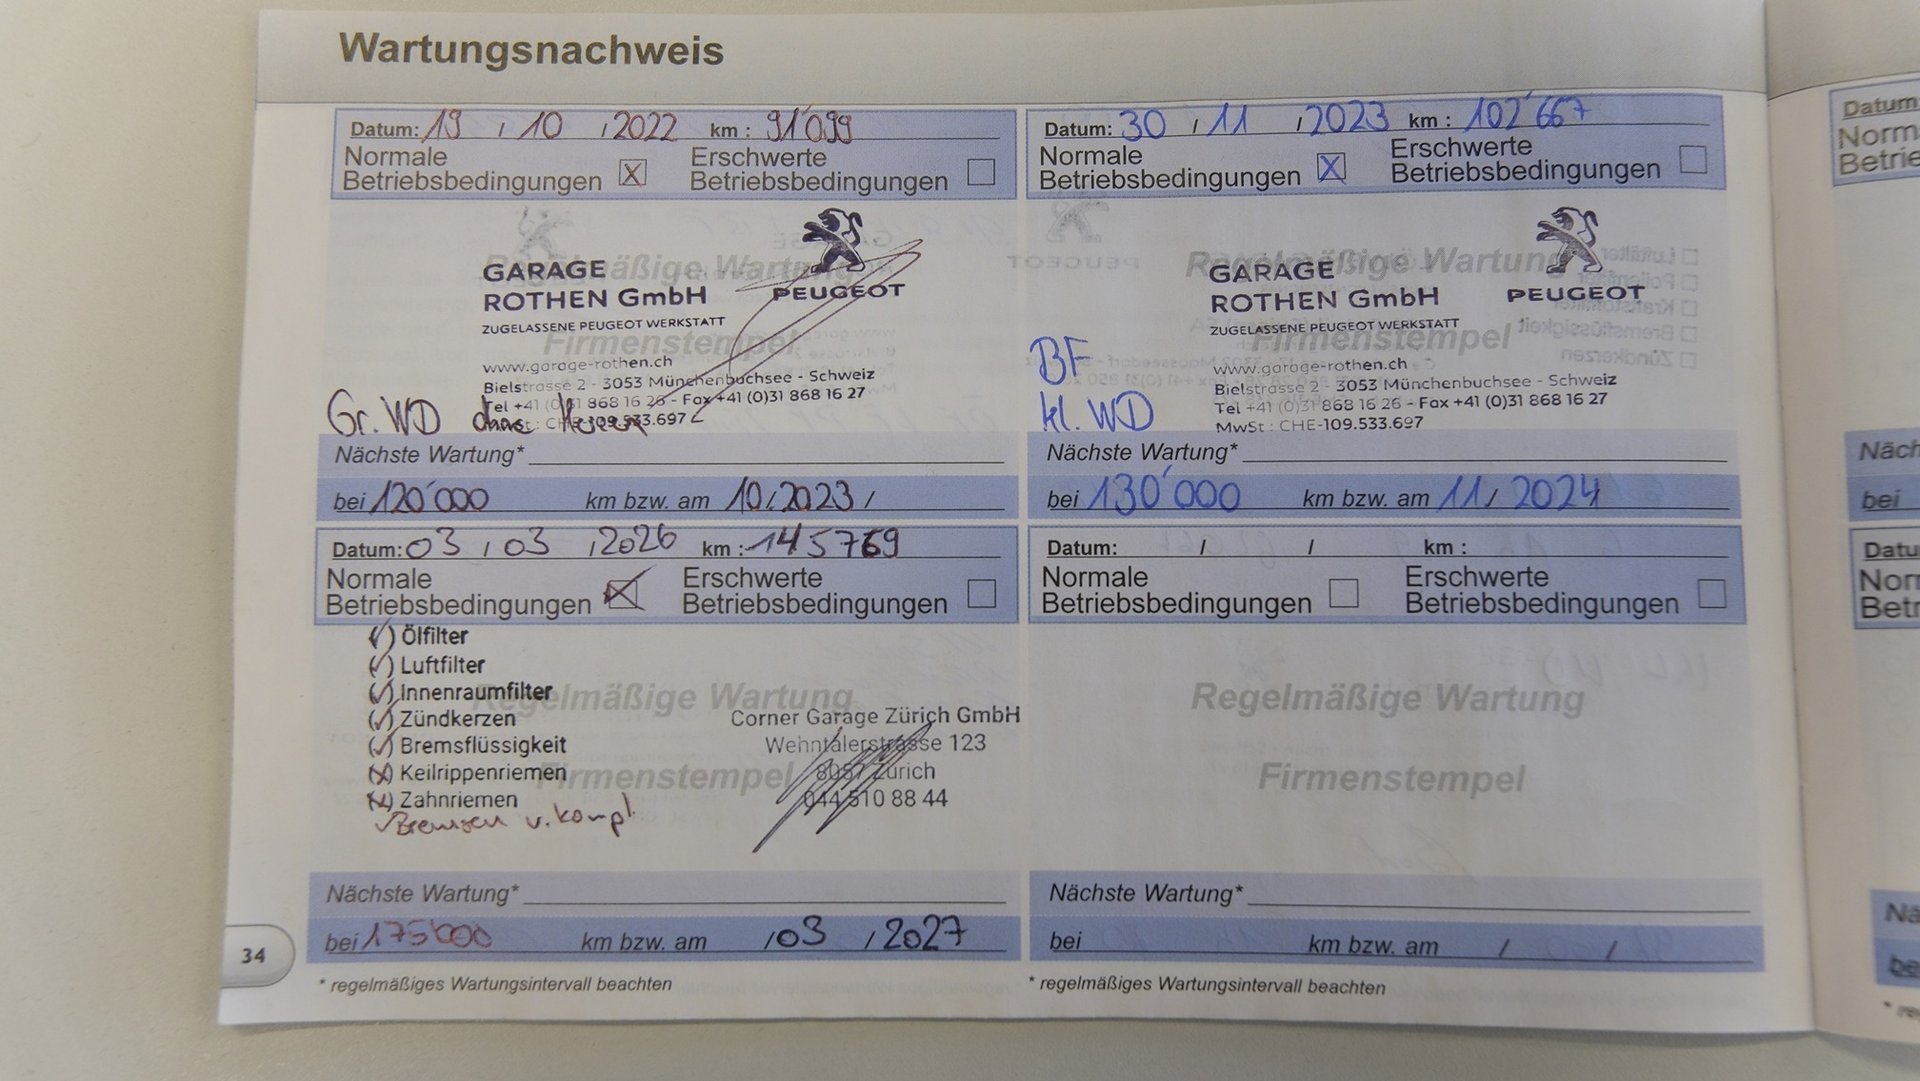 Wartungsnachweis
Datum: 19 / 10 / 2022 km: 91'099
Normale
Betriebsbedingungen X
Erschwerte
Betriebsbedingungen
Regelmäßige Wartung
Firmenstempel
GARAGE
ROTHEN GmbH
PEUGEOT
ZUGELASSENE PEUGEOT WERKSTATT
www.garage-rothen.ch
Bielstrasse 2 - 3053 Münchenbuchsee - Schweiz
Tel +41 (0)31 868 16 26 - Fax +41 (0)31 868 16 27
MwSt : CHE-109.533.697
Gr. WD ohne
Nächste Wartung*
bei 120'000 km bzw. am 10/2023/
Datum: 30 / 11 / 2023 km: 102'667
Normale
Betriebsbedingungen X
Erschwerte
Betriebsbedingungen
Regelmäßige Wartung
Firmenstempel
GARAGE
ROTHEN GmbH
PEUGEOT
ZUGELASSENE PEUGEOT WERKSTATT
www.garage-rothen.ch
Bielstrasse 2 - 3053 Münchenbuchsee - Schweiz
Tel +41 (0)31 868 16 26 - Fax +41 (0)31 868 16 27
MwSt : CHE-109.533.697
BF
kl. WD
Nächste Wartung*
bei 130'000 km bzw. am 11/ 2024
Datum: 03 / 03 / 2026 km: 145769
Normale
Betriebsbedingungen X
Erschwerte
Betriebsbedingungen
Regelmäßige Wartung
Firmenstempel
(✓) Ölfilter
(✓) Luftfilter
(✓) Innenraumfilter
(✓) Zündkerzen
(✓) Bremsflüssigkeit
(X) Keilrippenriemen
(X) Zahnriemen
✓Bremsen v. kompl.
Corner Garage Zürich GmbH
Wehntalerstrasse 123
8057 Zürich
044 510 88 44
Nächste Wartung*
bei 175'000 km bzw. am /03 / 2027
* regelmäßiges Wartungsintervall beachten
Datum: / / km :
Normale
Betriebsbedingungen
Erschwerte
Betriebsbedingungen
Regelmäßige Wartung
Firmenstempel
Nächste Wartung*
bei km bzw. am / /
* regelmäßiges Wartungsintervall beachten
34